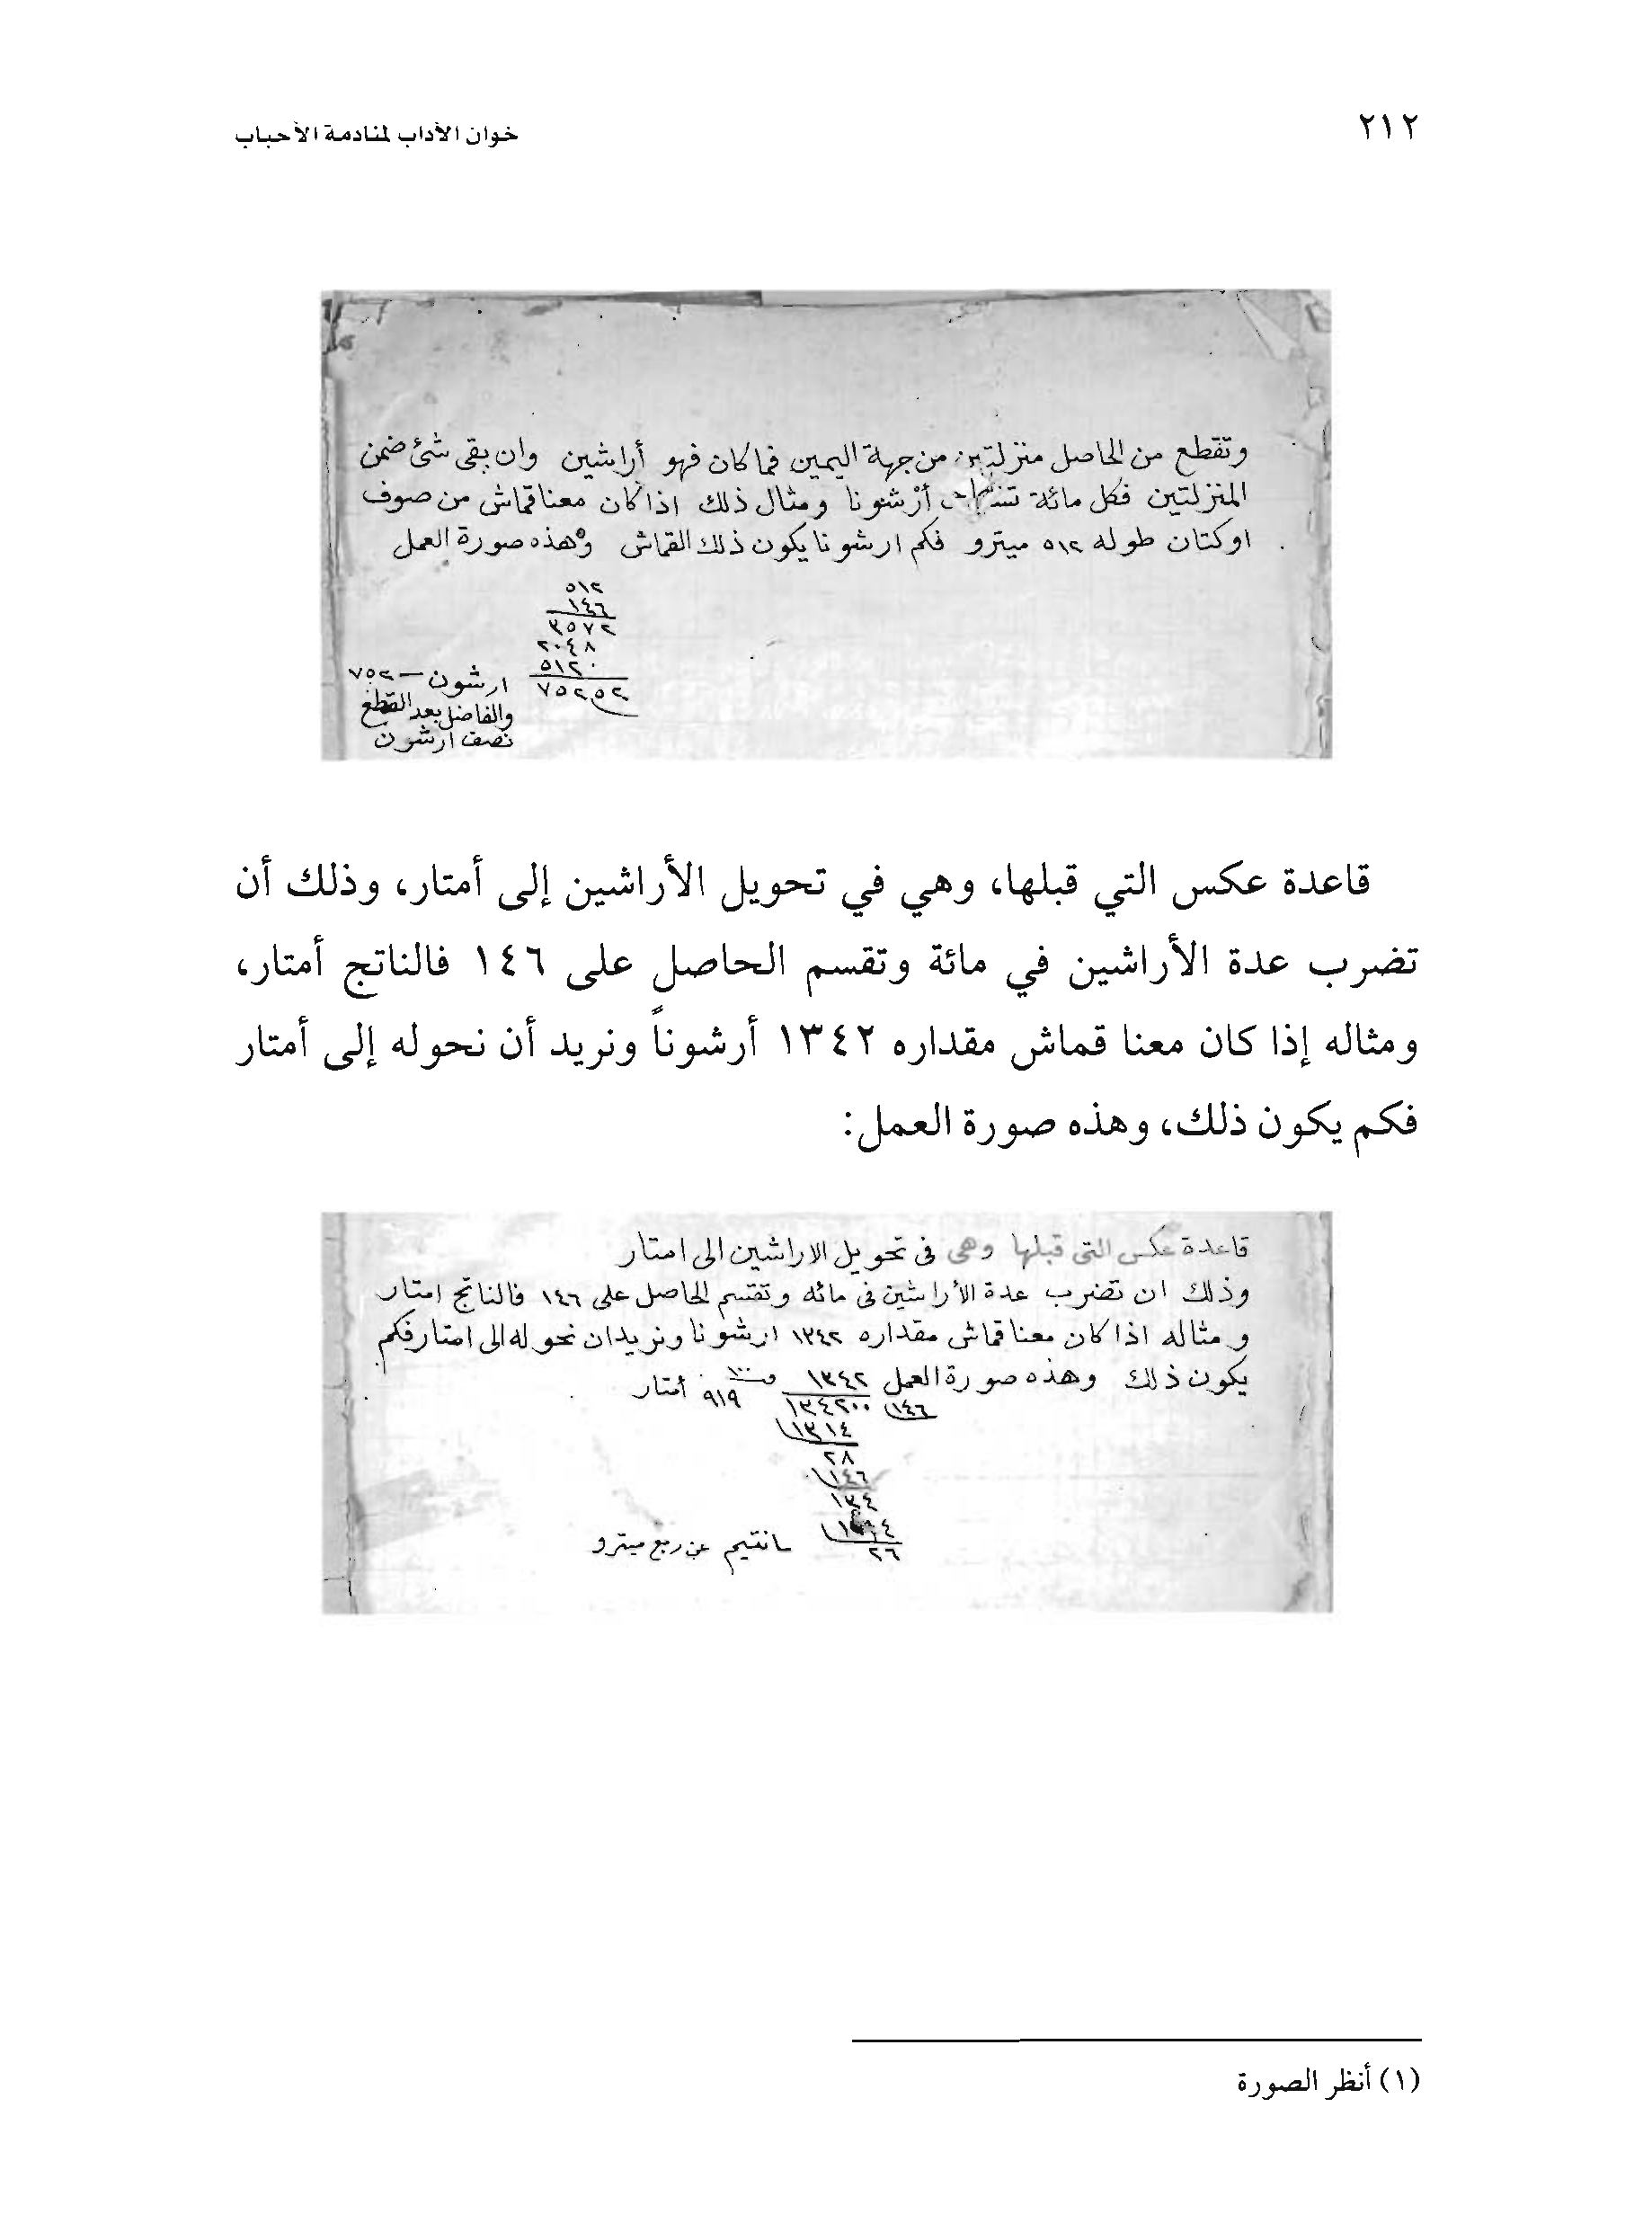 ٢١٢
خوان الأداب لمنادمة الأحباب
وتقطع من الحاصل منزلتين من جهة اليمين فما كان فهو أراشين وان بقى شئ ضمن
المنزلتين فكل مائة أرْشونا ومثال ذلك اذا كان معنا قماش من صوف
او كتان طوله ٥١٢ ميترو فكم ارشونا يكون ذلك القماش وهذه صورة العمل
٥١٢
١٤٦
٣٥٧٢
٢٠٤٨
٥١٢٠
٧٥٢٥٢
ارشون – ٧٥٢
والفاضل بعد القطع
نصف ارشون
قاعدة عكس التي قبلها، وهي في تحويل الأراشين إلى أمتار، وذلك أن
تضرب عدة الأراشين في مائة وتقسم الحاصل على ١٤٦ فالناتج أمتار،
ومثاله إذا كان معنا قماش مقداره ١٣٤٢ أرشوناً ونريد أن نحوله إلى أمتار
فكم يكون ذلك، وهذه صورة العمل:
قاعدة عكس التى قبلها وهى فى تحويل الاراشين الى امتار
وذلك ان تضرب عدة الأراشين فى مائه وتقسم الحاصل على ١٤٦ فالناتج امتار
ومثاله اذا كان معنا قماش مقداره ١٣٤٢ ارشونا ونريد ان نحوله الى امتار فكم
يكون ذلك وهذه صورة العمل ١٣٤٢ ١٠٠
١٣٤٢٠٠ ١٤٦ ٩١٩ أمتار
١٣١٤
٢٨
١٤٦
١٣٤
٢٦ سانتيم عن ربع ميترو
(١) أنظر الصورة